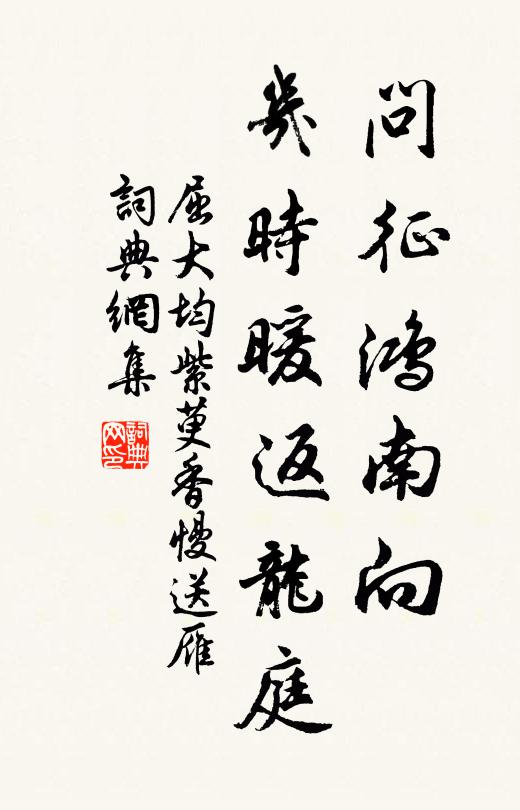 問征鴻南向
幾時暖返龍庭
屈大均紫萸香慢送雁
詞典網集
詞典网印